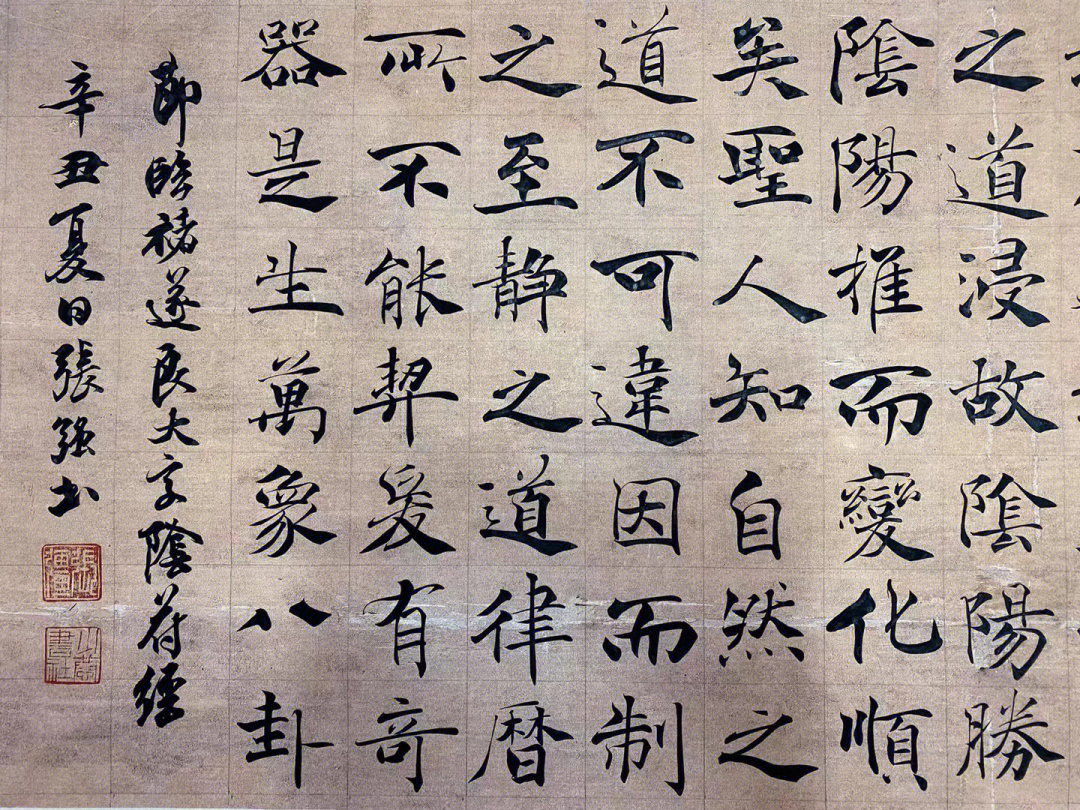 之道浸故陰陽勝
陰陽推而變化順
矣聖人知自然之
道不可違因而制
之至静之道律暦
所不能契爰有奇
器是生萬象八卦
節臨褚遂良大字陰符經
辛丑夏日張强書